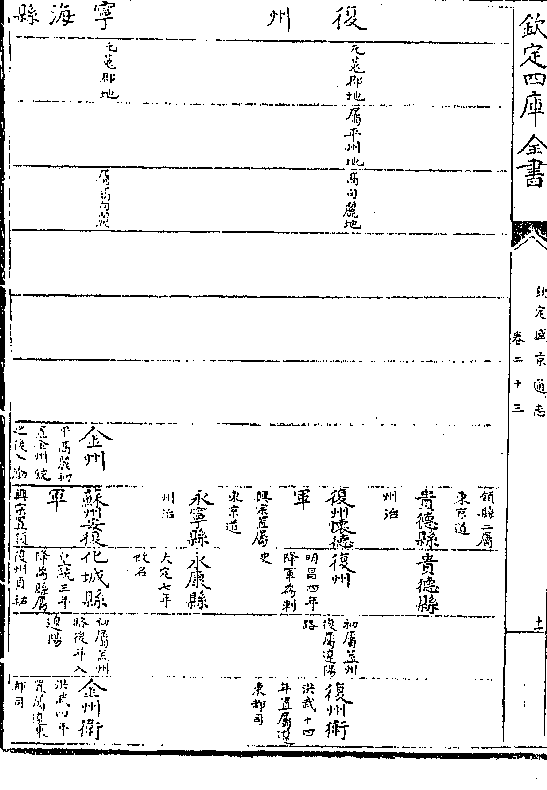 欽定四庫全書
欽定盛京通志
卷二十三
十一
領縣二屬
東京道
貴德縣
州治
貴德縣
復州
元菟郡地
屬平州地
高句麗地
復州懷德
軍
興宗置屬
東京道
復州
明昌四年
降軍為刺
史
初屬蓋州
後屬遼陽
路
復州衛
洪武十四
年置屬遼
東都司
永寧縣
州治
永康縣
大定七年
改名
寧海縣
元菟郡地
屬高句麗
金州
平高麗初
置金州統
之後入渤
蘇州安復
軍
興宗置
化城縣
皇統三年
降為縣屬
復州貞祐
初屬蓋州
路後并入
遼陽
金州衛
洪武四年
置屬遼東
都司